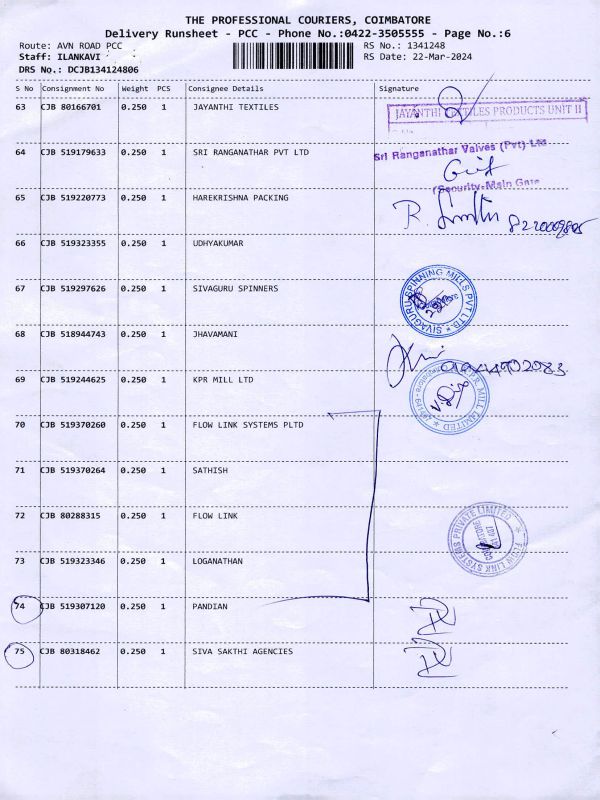 THE PROFESSIONAL COURIERS, COIMBATORE
Delivery Runsheet - PCC - Phone No.:0422-3505555 - Page No.:6
Route: AVN ROAD PCC RS No.: 1341248
Staff: ILANKAVI RS Date: 22-Mar-2024
DRS No.: DCJB134124806
S No Consignment No Weight PCS Consignee Details Signature
63 CJB 80166701 0.250 1 JAYANTHI TEXTILES
JAYANTHI TEXTILES PRODUCTS UNIT II
64 CJB 519179633 0.250 1 SRI RANGANATHAR PVT LTD
Sri Ranganathar Valves (Pvt) Ltd
(Security-Main Gate
65 CJB 519220773 0.250 1 HAREKRISHNA PACKING
66 CJB 519323355 0.250 1 UDHYAKUMAR
67 CJB 519297626 0.250 1 SIVAGURU SPINNERS
* SIVAGURU SPINNING MILLS PVT LTD *
68 CJB 518944743 0.250 1 JHAVAMANI
69 CJB 519244625 0.250 1 KPR MILL LTD
K.P.R. MILL LIMITED *
70 CJB 519370260 0.250 1 FLOW LINK SYSTEMS PLTD
71 CJB 519370264 0.250 1 SATHISH
72 CJB 80288315 0.250 1 FLOW LINK
* FLOW LINK SYSTEMS PRIVATE LIMITED
73 CJB 519323346 0.250 1 LOGANATHAN
74 CJB 519307120 0.250 1 PANDIAN
75 CJB 80318462 0.250 1 SIVA SAKTHI AGENCIES